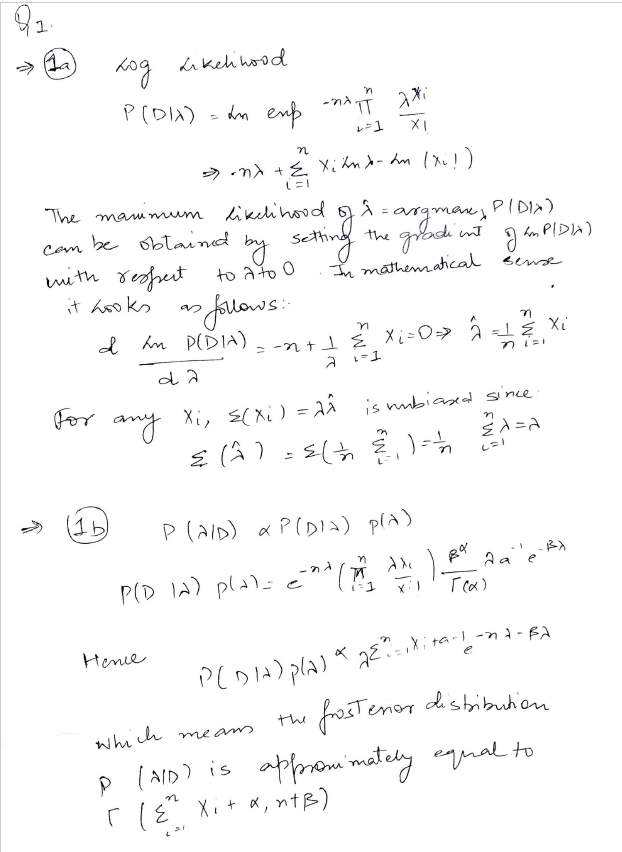 Q1.
⇒ (1a) Log Likelihood
P(D|λ) = Ln exp -nλ n Π i=1 λ^Xi / X!
⇒ -nλ + n Σ i=1 Xi Ln λ - Ln (Xi!)
The maximum likelihood of λ̂ = argmax, P(D|λ)
can be obtained by setting the gradient of Ln P(D|λ)
with respect to λ to 0. In mathematical sense
it looks as follows:-
d Ln P(D|λ) / dλ = -n + 1/λ n Σ i=1 Xi = 0 ⇒ λ̂ = 1/n n Σ i=1 Xi
For any Xi, Σ(Xi) = λ λ̂ is unbiased since.
Σ(λ̂) = Σ(1/n n Σ i=1) = 1/n n Σ i=1 λ = λ
⇒ (1b) P(λ|D) α P(D|λ) p(λ)
P(D|λ) p(λ) = e^-nλ (n Π i=1 λ^Xi / X!) β^α / Γ(α) λ a^-1 e^-βλ
Hence P(D|λ) p(λ) α λ^Σ n i=1 Xi+a-1 e^-nλ-βλ
which means the posterior distribution
P (λ|D) is approximately equal to
Γ (n Σ i=1 Xi + α, n+β)